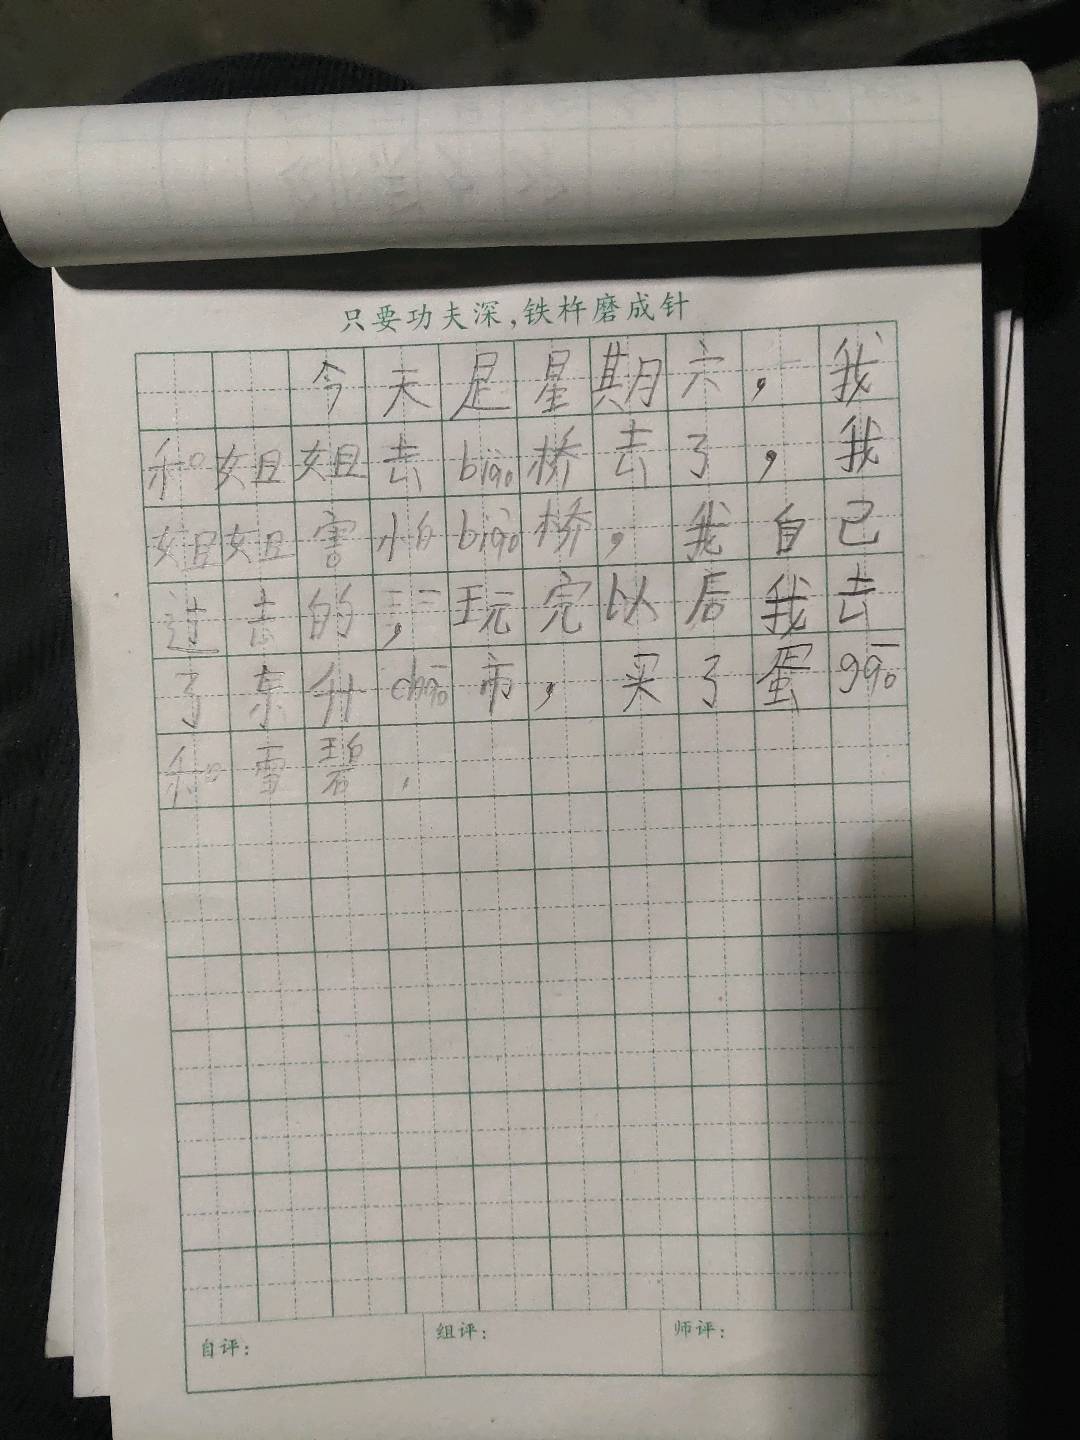 只要功夫深,铁杵磨成针
今天是星期六,我
和姐姐去biǎo桥去了,我
姐姐害怕biǎo桥,我自己
过去的,玩完以后我去
了东升chāo市,买了蛋gāo
和雪碧.
自评: 组评: 师评: